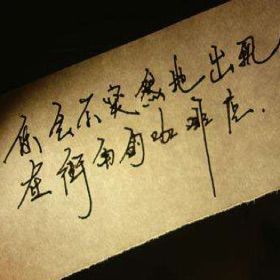 你会不突然地出现
在街角的咖啡店.